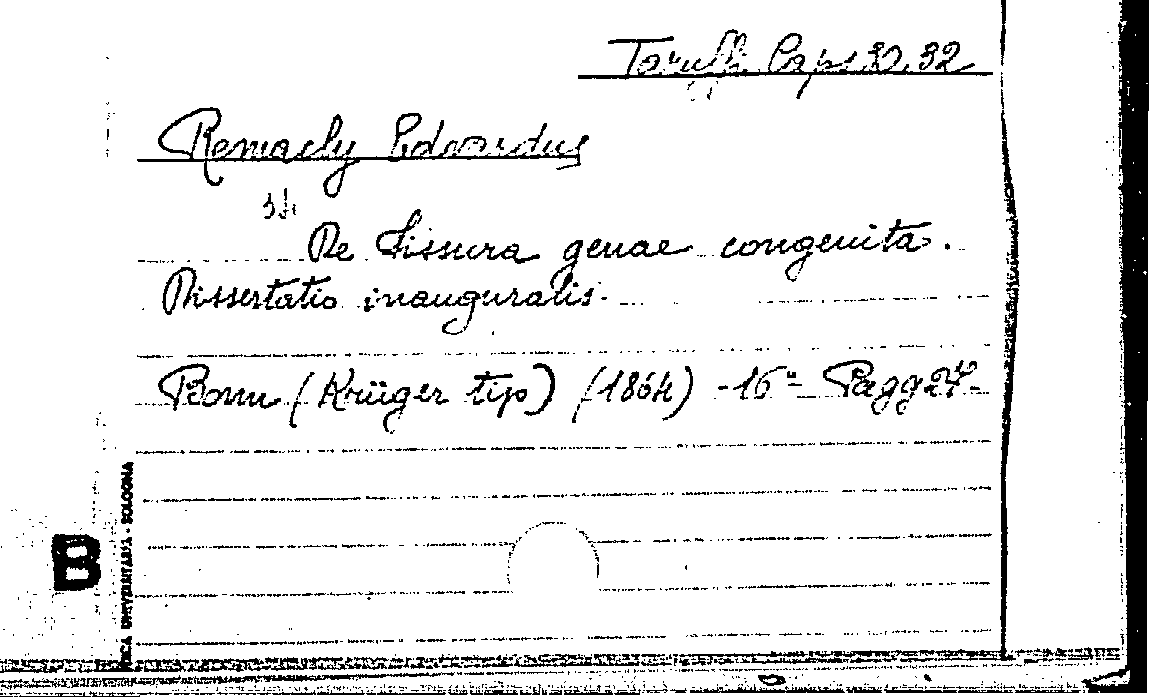 Taruffi Caps 30.32
Remacly Edvardus
De fissura genae congenita.
Dissertatio inauguralis.
Bonn (Krüger tip) (1864) - 16° - Pagg 24 -
B
UNIVERSITARIA - BOLOGNA